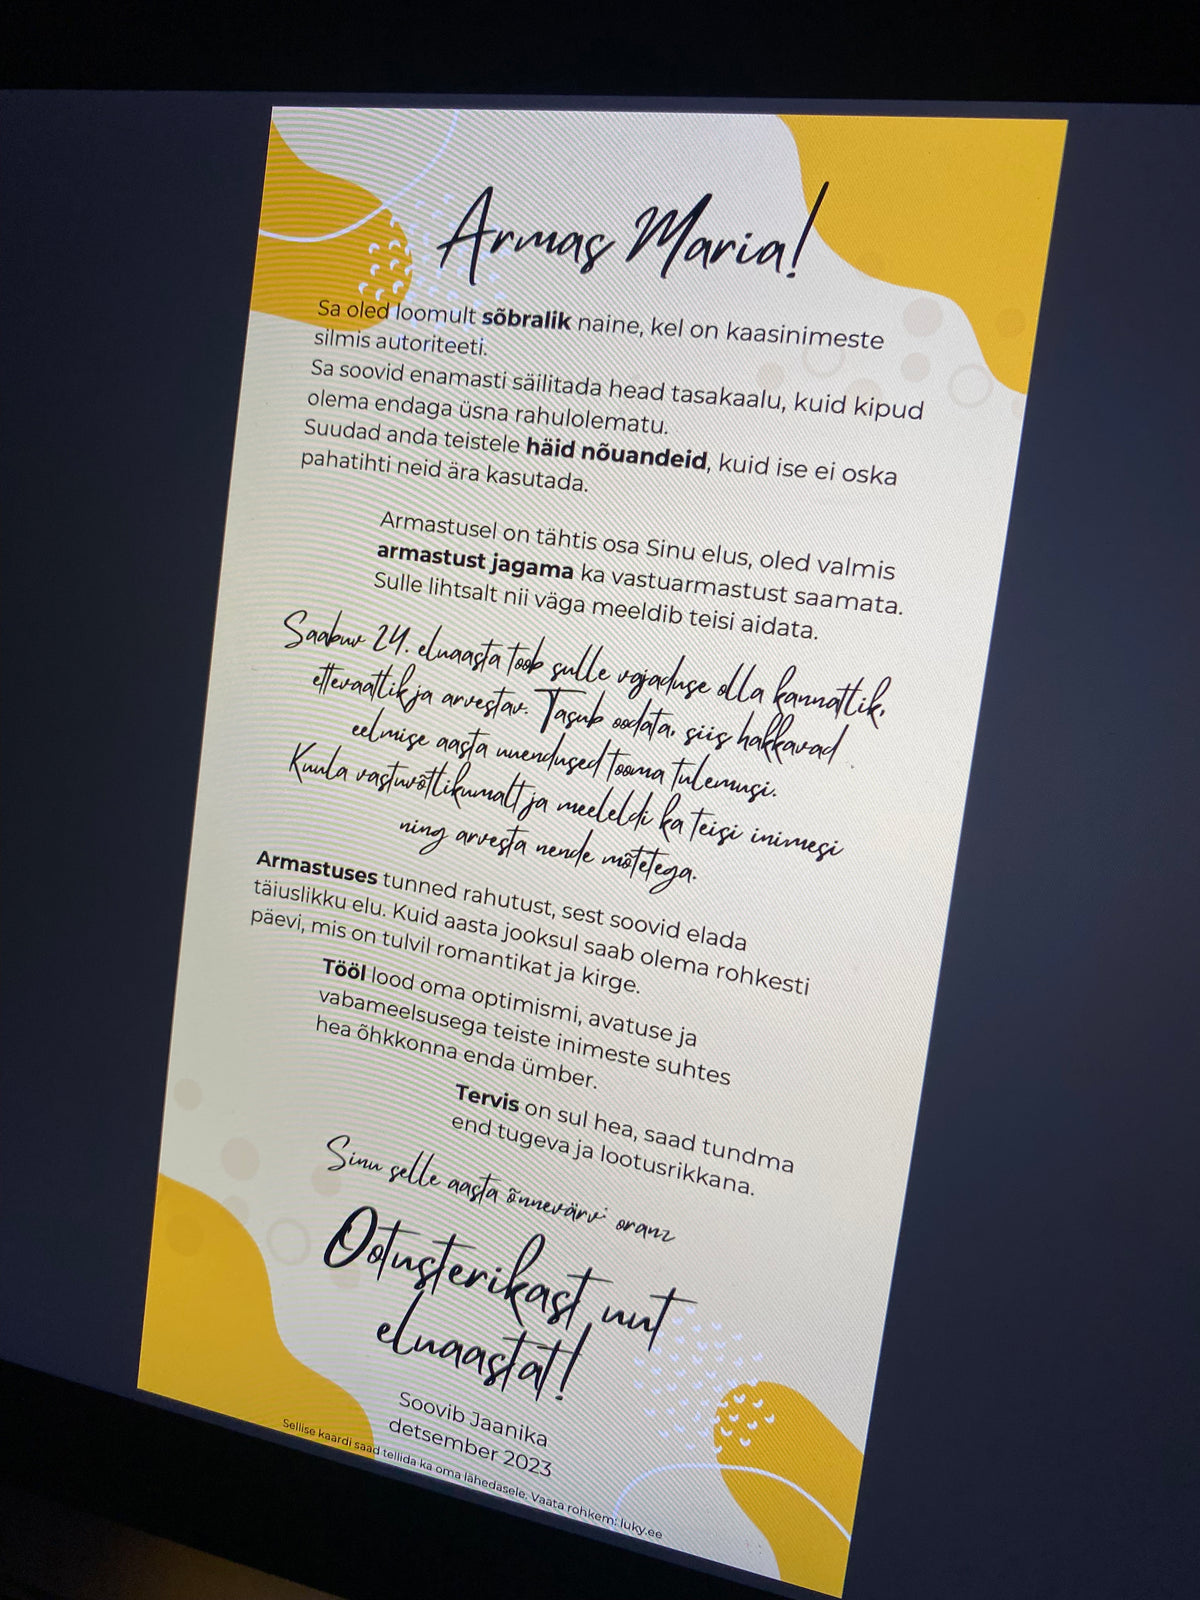 Armas Maria!
Sa oled loomult sõbralik naine, kel on kaasinimeste
silmis autoriteeti.
Sa soovid enamasti säilitada head tasakaalu, kuid kipud
olema endaga üsna rahulolematu.
Suudad anda teistele häid nõuandeid, kuid ise ei oska
pahatihti neid ära kasutada.
Armastusel on tähtis osa Sinu elus, oled valmis
armastust jagama ka vastuarmastust saamata.
Sulle lihtsalt nii väga meeldib teisi aidata.
Saabuv 24. eluaasta toob sulle vajaduse olla kannatlik,
ettevaatlik ja arvestav. Tasub oodata, siis hakkavad
eelmise aasta uuendused tooma tulemusi.
Kuula vastuvõtlikumalt ja meeleldi ka teisi inimesi
ning arvesta nende mõtetega.
Armastuses tunned rahutust, sest soovid elada
täiuslikku elu. Kuid aasta jooksul saab olema rohkesti
päevi, mis on tulvil romantikat ja kirge.
Tööl lood oma optimismi, avatuse ja
vabameelsusega teiste inimeste suhtes
hea õhkkonna enda ümber.
Tervis on sul hea, saad tundma
end tugeva ja lootusrikkana.
Sinu selle aasta õnnevärv: oranz
Ootusterikast uut
eluaastat!
Soovib Jaanika
detsember 2023
Sellise kaardi saad tellida ka oma lähedasele. Vaata rohkem: luky.ee